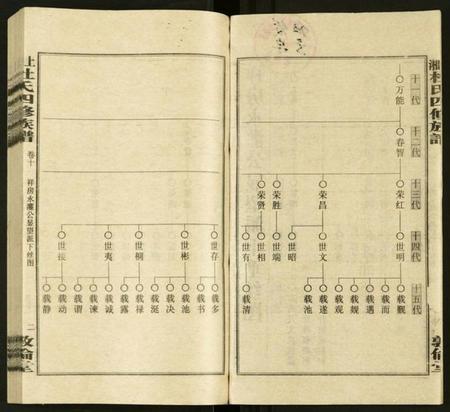 湘杜氏四修族谱
敦伦堂
十一代
万能
十二代
春智
十三代
荣红
荣昌
荣胜
荣贤
十四代
世明
世文
世昭
世端
世相
世有
十五代
载觐
载而
载遇
载觌
载观
载遂
载池
载清
世存
世彬
世桐
世夷
世振
载多
载书
载池
载决
载涎
载禄
载露
载诚
载谏
载谓
载动
载静
上杜氏四修族谱
卷十
祥房永灌公晏望派下丝图
二
敦伦堂